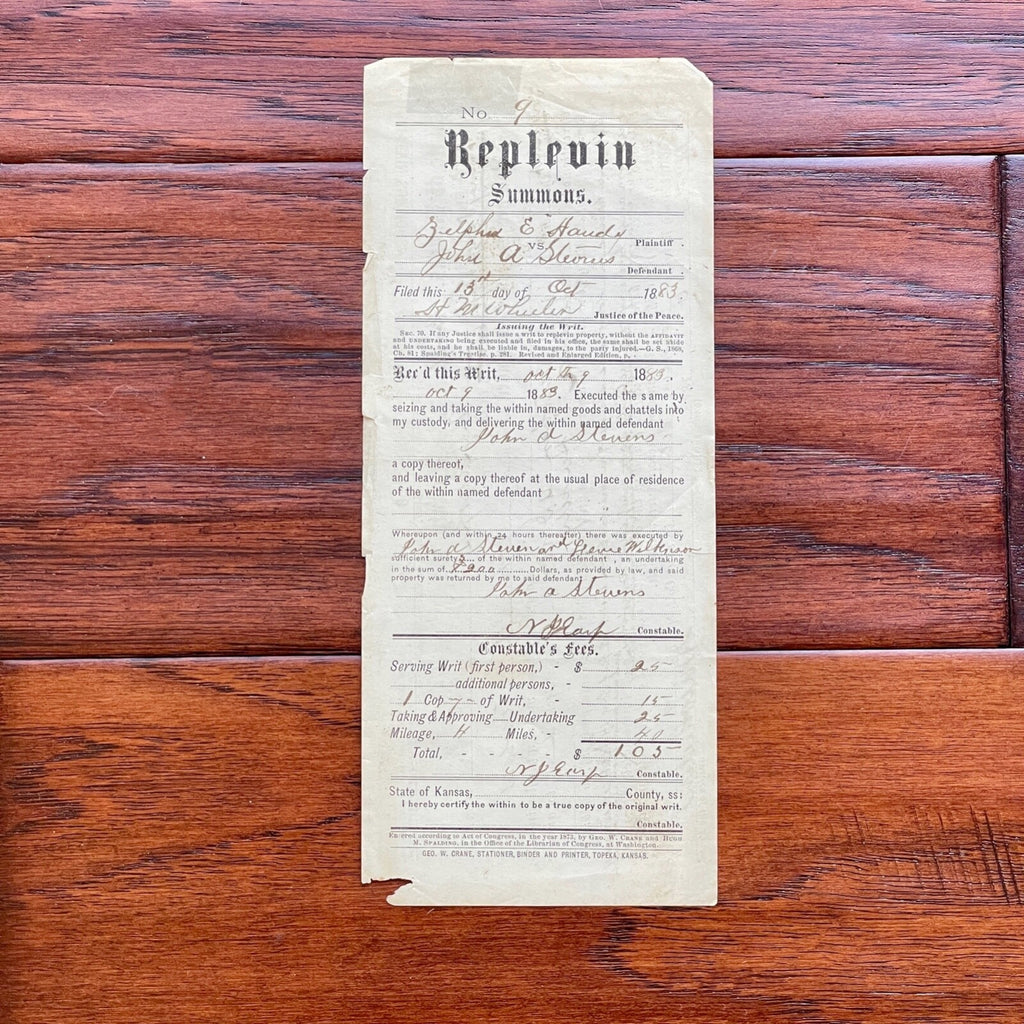 No 9
Replevin
Summons.
Zilpha E Handy Plaintiff.
vs
John A Stevens Defendant.
Filed this 13th day of Oct 1883.
H M Wheeler Justice of the Peace.
Issuing the Writ.
Sec. 70. If any Justice shall issue a writ to replevin property, without the AFFIDAVIT
and UNDERTAKING being executed and filed in his office, the same shall be set aside
at his costs, and he shall be liable in, damages, to the party injured.—G. S., 1868,
Ch. 81; Spalding's Treatise, p. 281. Revised and Enlarged Edition, p.
Rec'd this Writ, oct th 9 1883.
oct 9 1883. Executed the same by
seizing and taking the within named goods and chattels into
my custody, and delivering the within named defendant
John A Stevens
a copy thereof,
and leaving a copy thereof at the usual place of residence
of the within named defendant
Whereupon (and within 24 hours thereafter) there was executed by
John A Steven and Wilkinson
sufficient surety of the within named defendant, an undertaking
in the sum of $200 Dollars, as provided by law, and said
property was returned by me to said defendant
John a Stevens
N J Earp Constable.
Constable's Fees.
Serving Writ (first person,) - $ 25
additional persons, -
1 Cop-y- of Writ, - 15
Taking & Approving Undertaking 25
Mileage, 4 Miles, - 40
Total, - - - - $ 1 05
N J Earp Constable.
State of Kansas, County, ss:
I hereby certify the within to be a true copy of the original writ.
Constable.
Entered according to Act of Congress, in the year 1873, by GEO. W. CRANE and HUGH
M. SPALDING, in the Office of the Librarian of Congress, at Washington.
GEO. W. CRANE, STATIONER, BINDER AND PRINTER, TOPEKA, KANSAS.